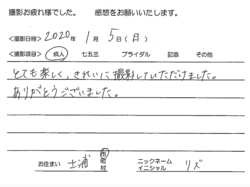 撮影お疲れ様でした。 感想をお願いいたします。
<撮影日時> 2020年 1月 5日(日)
<撮影項目> 成人 七五三 ブライダル 記念 その他
とても楽しく、きれいに撮影していただけました。
ありがとうございました。
お住まい 土浦 市 町 村 ニックネーム イニシャル リズ